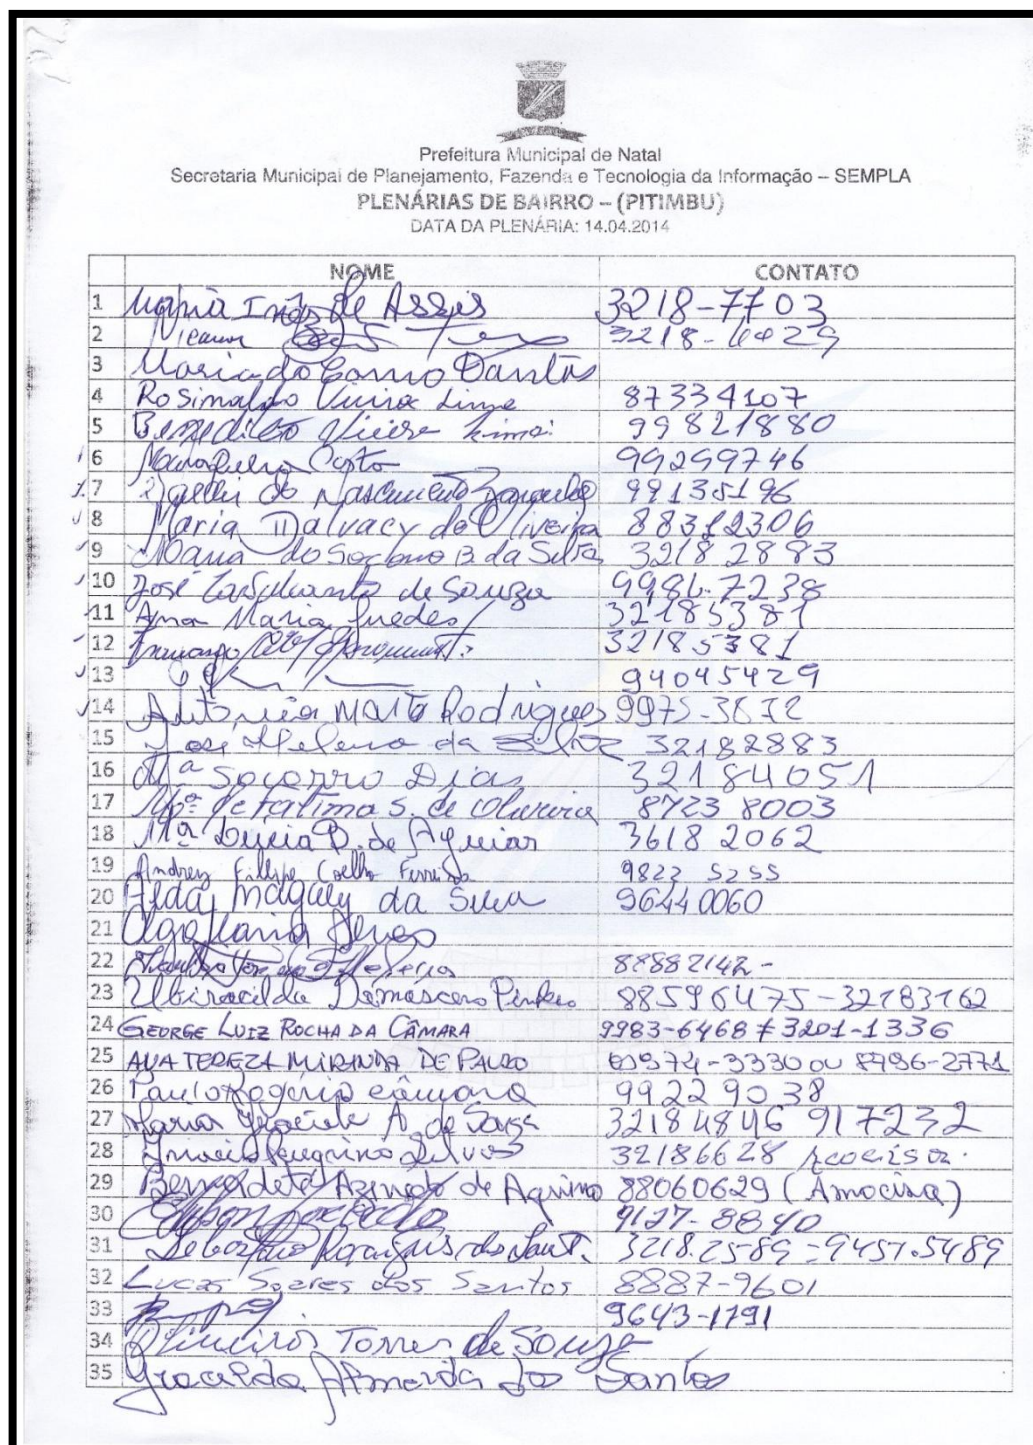 Prefeitura Municipal de Natal
Secretaria Municipal de Planejamento, Fazenda e Tecnologia da Informação – SEMPLA
PLENÁRIAS DE BAIRRO – (PITIMBU)
DATA DA PLENÁRIA: 14.04.2014
NOME CONTATO
1 Maria Inês de Assis 3218-7703
2 3218-
3 Maria do Carmo Dantas
4 Rosimaldo Vieira Lima 87334107
5 Benedito Vieira Lima 99821880
6 Costa 99299746
7 do Nascimento 99135196
8 Maria Dalvacy de Oliveira 88312306
9 Maria do Socorro B da Silva 3218 2883
10 José Cavalcante de Souza 9986-7238
11 Ana Maria Guedes 32185381
12 32185381
13 94045429
14 Antonia Marta Rodrigues 9975-3672
15 José Heleno da Silva 32182883
16 Mª Socorro Dias 32184051
17 Mª de Fátima S. de Oliveira 8723 8003
18 Mª Lucia D. de Aguiar 3618 2062
19 Andrey Fillype Coelho Ferreira 9822 5255
20 Aldai Magaly da Silva 96440060
21 Olga Maria
22 88882142-
23 Ubiracilda Damasceno 88596475-32183162
24 GEORGE LUIZ ROCHA DA CÂMARA 9983-6468 # 3201-1336
25 ANA TEREZA MIRANDA DE 3330 ou 8796-2771
26 Paulo Rogério câmara 99229038
27 Maria A. de Souza 32184846 917232
28 Peregrino 32186628
29 Bernardete Azevedo de Aquino 88060629 (Amocina)
30 9127-8840
31 Sebastião Rodrigues dos Sant. 3218.2589 - 9457.5489
32 Lucas Soares dos Santos 8887-9601
33 9643-1791
34 Torres de Souza
35 Gracilda Almeida dos Santos